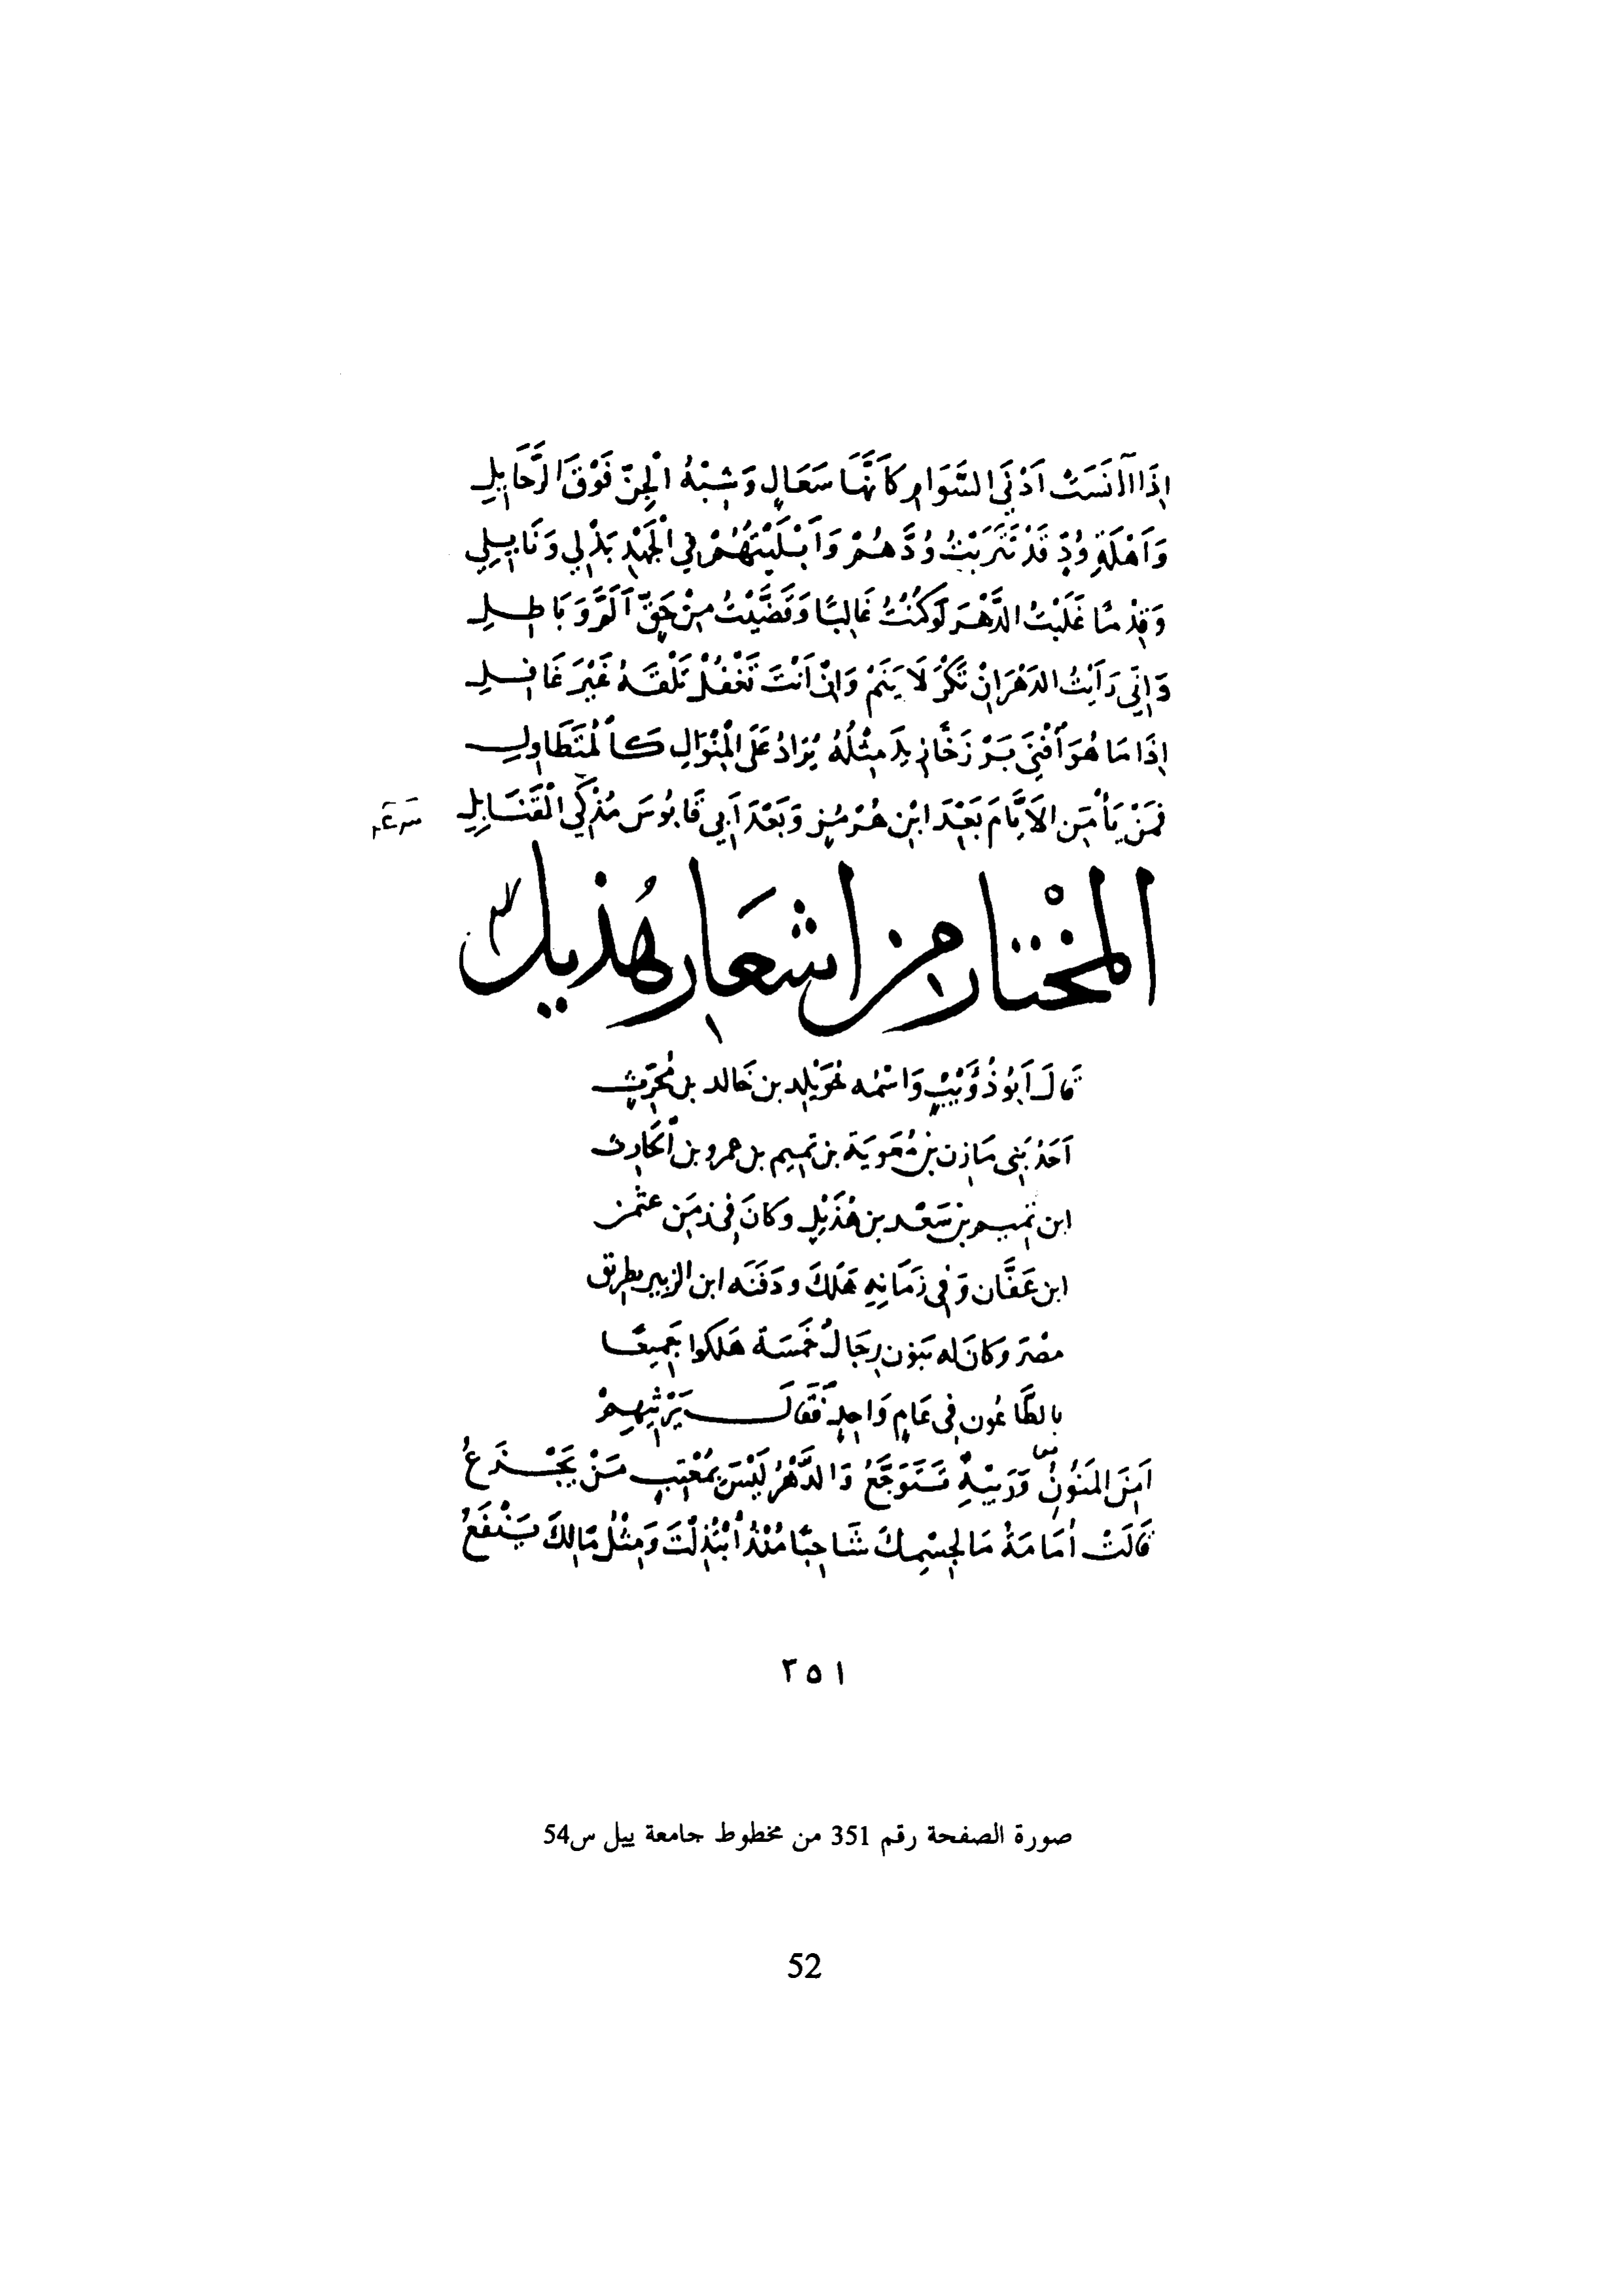 إِذَا آنَسَتْ أَدْنَى السَّوَامِ كَأَنَّهَا سَعَالٍ وَشِبْهُ الجِنِّ فَوْقَ الرَّحَايِلِ
وَأَهْلَةِ وُدٍّ قَدْ تَبَرَّيْتُ وُدَّهُمْ وَأَبْلَيْتُهُمْ فِي الجَهْدِ بَذْلِي وَنَايِلِي
وَقِدْمًا غَلَبْتُ الدَّهْرَ لَوْ كُنْتُ غَالِبًا وَقَضَّيْتُ مِنْ حَقٍّ أَلَمَّ وَبَاطِلِ
وَإِنِّي رَأَيْتُ الدَهْرَ إِنْ تَكْرَ لَا يَنَمْ وَإِنْ أَنْتَ تَغْفُلْ تَلْقَهُ غَيْرَ غَافِلِ
إِذَا مَا هُوَ أَفْنَى مِثْلُهُ يُزَادُ عَلَى المِنْوَالِ كَالمُتَطَاوِلِ
فَمَنْ يَأْمَنِ الأَيَّامَ بَعْدَ ابْنِ هُرْمُزٍ وَبَعْدَ أَبِي قَابُوسَ مُذْكِي القَنَابِلِ
المُخْتَار مِن أَشعَارِ هُذيل
قَالَ أَبُو ذُؤَيْبٍ وَاسْمُه خُوَيْلِد بن خَالد بن مُحَرِّثٍ
أَحَدُ بَنِي مَازِن بْنِ مُعَوِيَة بن تَمِيم بن عمرو بن الحَارِث
ابن تَمِيم بن سَعْد بن هُذَيْلٍ وكَانَ فِي زمَنِ عثمن
ابن عَفَّان وَفِي زَمَانِهِ هَلَكَ ودَفَنَه ابن الزبير بطريق
مصْرَ وكَانَ له بَنون رِجَالٌ خَمسَة هَلَكوا جَمِيعًا
بالطَّاعُون فِي عَامٍ وَاحِدٍ فَقَالَ يَرْثِيهِمْ
أَمِنَ المَنُونِ وَرَيْبِهِ تَتَوَجَّعُ وَالدَّهْرُ لَيْسَ بِمُعْتِبٍ مَنْ يَجْزَعُ
قَالَتْ أُمَامَةُ مَا لِجِسْمِكَ شَاحِبًا مُنْذُ ابْتُذِلْتَ وَمِثْلُ مَالِكَ يَنْفَعُ
٣٥١
صورة الصفحة رقم 351 من مخطوط جامعة ييل س54
52